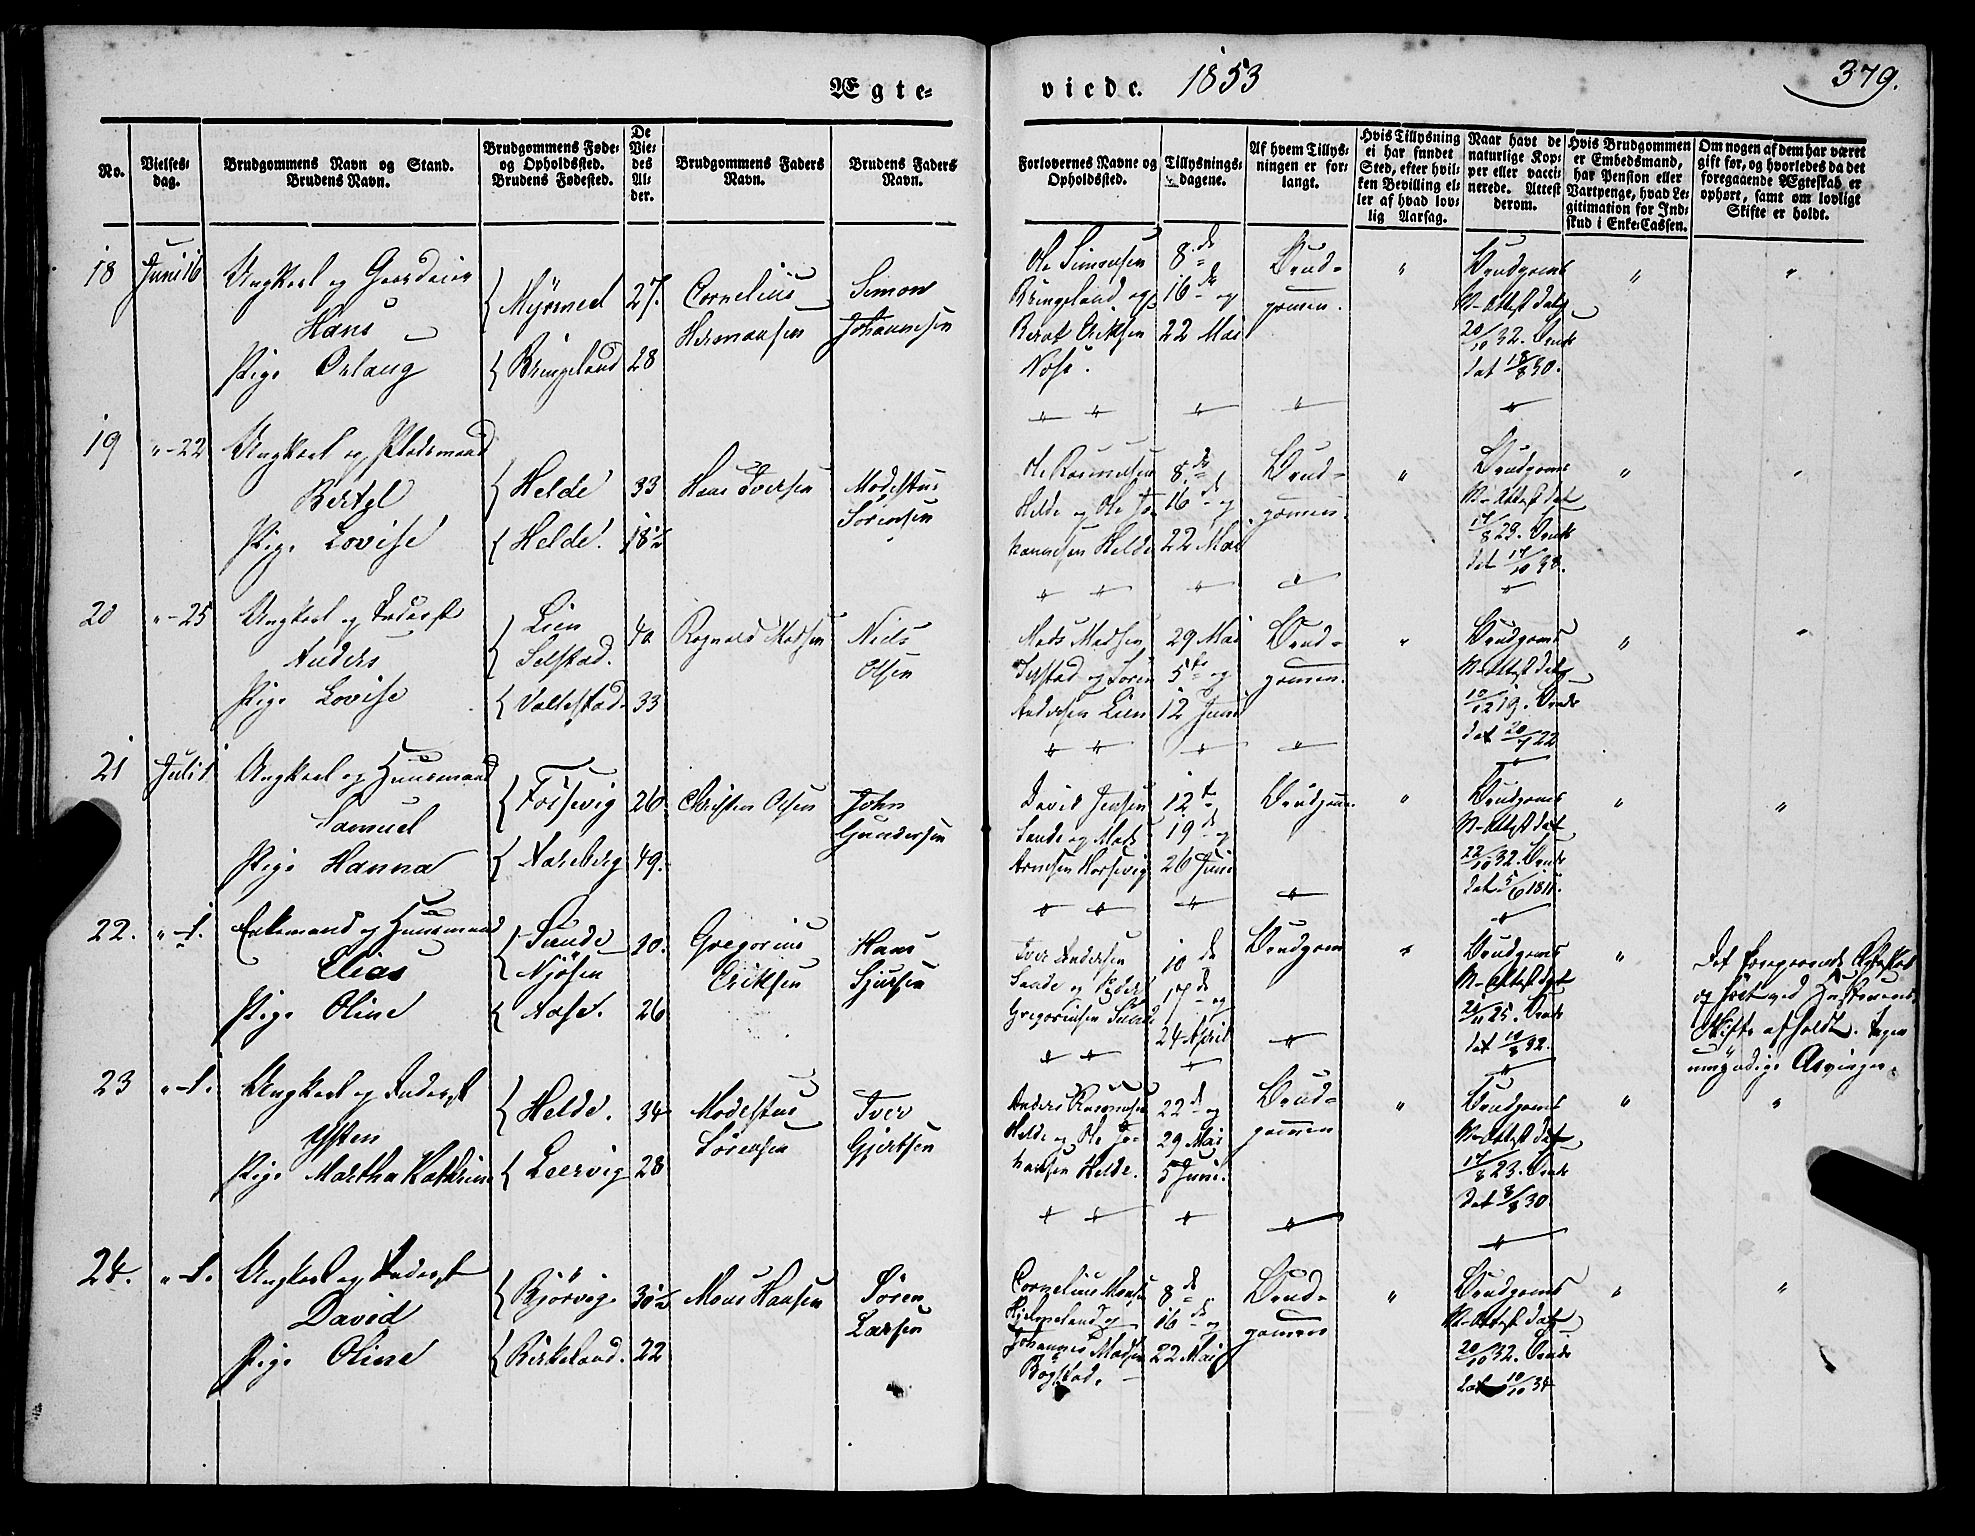 Ægte-
viede. 1853
379.
No.
Vielses-
dag.
Brudgommens Navn og Stand.
Brudens Navn.
Brudgommens Føde-
og Opholdssted.
Brudens Fødested.
De
Vie-
des
Al-
der.
Brudgommens Faders
Navn.
Brudens Faders
Navn.
Forlovernes Navne og
Opholdssted.
Tillysnings-
dagene.
Af hvem Tillys-
ningen er for-
langt.
Hvis Tillysning
ei har fundet
Sted, efter hvil-
ken Bevilling el-
ler af hvad lov-
lig Aarsag.
Naar havt de
naturlige Kop-
per eller vacci-
nerede. Attest
derom.
Hvis Brudgommen
er Embedsmand,
har Pension eller
Vartpenge, hvad Le-
gitimation for Ind-
skud i Enke-Cassen.
Om nogen af dem har været
gift før, og hvorledes da det
foregaaende Ægteskab er
ophørt, samt om lovligt
Skifte er holdt.
18
Juni 16
Ungkarl og Gaardeier
Hans
Pige Orlaug
Myrmel
Bringeland
27.
28
Cornelius
Hermansen
Simon
Johannesen
Ole Simonsen
Bringeland og
Berat Eriksen
Nose.
8de
16de og
22 Mai
Brud-
gomen.
"
Brudgoms
V-Attest dat
20/10 32. Bruds
dat 18/8 30.
"
"
19
"-22
Ungkarl og Pladsmand
Bertel
Pige Lovise
Helde
Helde.
33
18½
Hans Iversen
Modestus
Sørensen
Ole Rasmusen
Helde og Ole Jo-
hannesen Helde
8de
16de og
22 Mai
Brud-
gomen.
"
Brudgoms
V-Attest dat
17/8 23. Bruds
dat 17/10 38.
"
"
20
"-25
Ungkarl og Inderst
Anders
Pige Lovise
Lien
Selstad.
Valtestad.
40
33
Rognald Madsen
Niels
Olsen
Mads Madsen
Selstad og Søren
Andersen Lien
29 Mai
5te og
12 Juni
Brud-
gomen.
"
Brudgoms
V-Attest dat
10/12 19. Bruds
dat 20/7 22
"
"
21
Juli 1
Ungkarl og Huusmand
Samuel
Pige Hanna
Fossevig
Aareberg
26.
49.
Christen Olsen
John
Gundersen
David Jensen
Sande og Mads
Arnesen Horsevig
12te
19de og
26 Juni
Brudgom.
"
Brudgoms
V-Attest dat
22/10 32. Bruds
dat 5/6 1811.
"
"
22.
"-1.
Enkemand og Huusmand
Elias
Pige Oline
Sunde
Njøsen
Aase.
30.
26
Gregorius
Eriksen
Hans
Sjursen
Iver Andersen
Sande og Peder
Gregoriusen Sunde
10de
17de og
24 April
Brudgom
"
Brudgoms
V-Attest dat
Bruds
dat 10/8 32.
"
Det foregaaende Ægteskab
Skifte afholdt. Ingen
umyndige Arvinger.
23
"-1.
Ungkarl og Inderst
Ysten
Pige Martha Kathrine
Helde.
Leervig
34
28
Modestus
Sørensen
Iver
Gjertsen
Anders Rasmusen
Helde og Ole Jo-
hansen Helde.
22de og
29 Mai
5 Juni.
Brud-
gomen
"
Brudgoms
V-Attest dat
17/8 23. Bruds
dat 8/8 30
"
"
24.
"-1.
Ungkarl og Inderst
David
Pige Oline
Bjørvig
Birkeland.
30½
22
Mons Hansen
Søren
Larsen
Cornelius Monsen
Hjelmeland og
Johannes Madsen
Bogstad.
8de
16de og
22 Mai
Brud-
gomen
"
Brudgoms
V-Attest dat
20/10 32. Bruds
dat 10/10 34
"
"